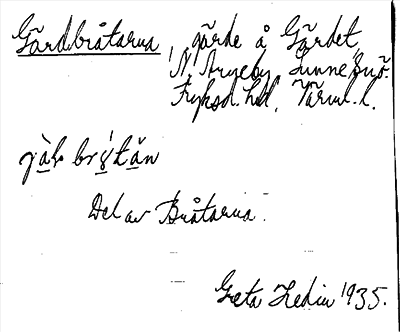 Gårdbråtarna, gärde å Gärdet,
N. Aryeby Sunne
Fryksd. hd. Värml. l.
Del av Bråtarna.
Greta Hedin 1935.